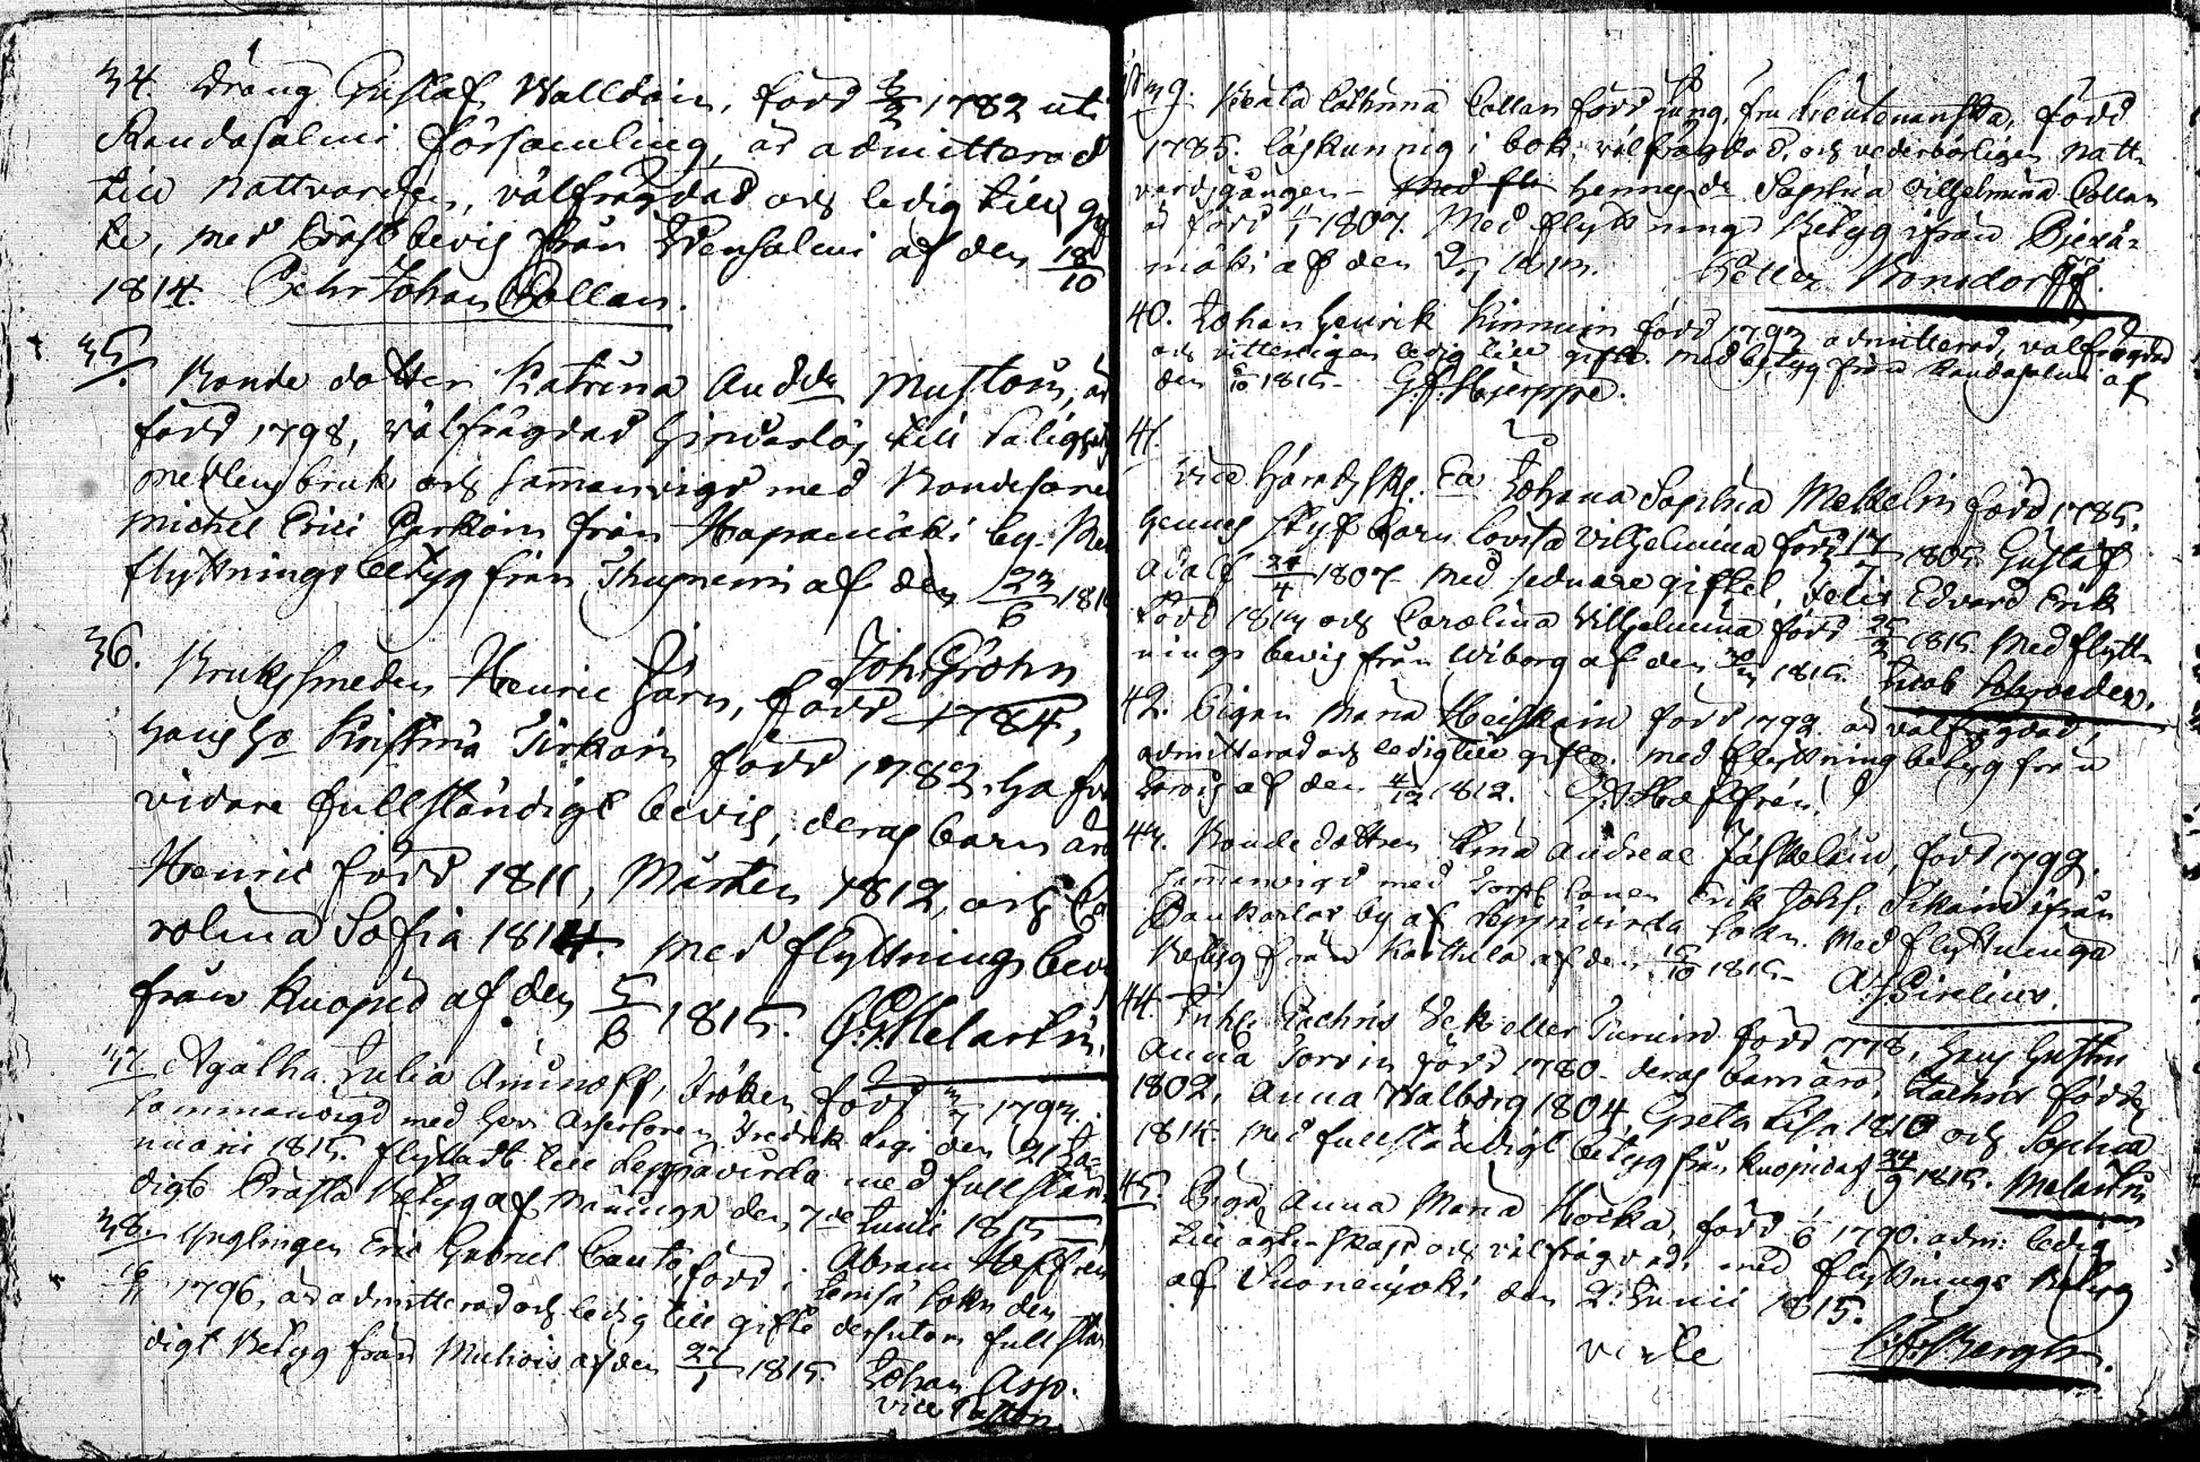 34. Dräng Gustaf Walldén, född 1782 uti
Randasalmi församling, är admitterad
till Nattvarden, välfrägdad och ledig till gif
te, med Präst bevis från Idensalmi af den 18/10
1814. Pehr Johan Collan.
35.
Bonde dotter Katrina And: dr Muston, är
född 1798, välfrägdad hinderlös till Salighets
medlens bruk och sammanvigd med Bondesonen
Michel Erici Parkoin från Hapamäki by. Med
flyttnings betyg från Thusniemi af den 23/6 181
Joh: Grohn
36. Bruks smeden Henric Järn, född 1784,
Hans Ho Kristina Tirkoin född 1782. Ha för
vidare fullständigt bevis, deras barn äro
Henric född 1811, Mårten 1812, och Ca
rolina Sofia 1814. med flyttnings bevis
från Kuopio af den 5/6 1815. Melartin.
37. Agatha Julia Aminoff, Fröken född 3/7 1793.
sammanvigd med Herr Assessoren Fredrik den 21 Ja=
nuarii 1815. flyttadt till Leppävirda med fullstän
digt Prästa Betyg af den 7de Junii 1815
Abram Hoffrén
38. Ynglingen Eric Gabriel född i Jenisä Sokn den
16/11 1796, är admitterad och ledig till gifte dessutom fullstän
digt Betyg från Muhois af den 27/1 1815. Johan Asp.
vice Pastor
39. Beata Cathrina Collan född Jung, fru Lieutenantska, född
1785. läskunnig i bok, välfrägdad, och vederbörligen natt
vardsgången – hennes dr Sophia Vilhelmina Collan
är född 1807. Med flyttnings Betyg ifrån Pjexä=
mäki af den 1813. Petter Bonsdorff.
40. Johan Henrik Kinnuin född 1793 admitterad, välfrägdad
och vitterligen ledig till gifte. med betyg från Randasalmi af
den 1815 – G. F. Hjerppe.
41.
Vice Häradshfg. Ea Johana Sophia Mellelin född 1785.
Hennes styf barn Lovisa Vilhelmina född 17/7 1805. Gustaf
Adolf 24/4 1807 – med sednare giftet, Felix Edvard Erik
född 1813 och Carolina Vilhelmina född 25/2 1815. Med flytt
nings bevis från Wiborg af den 1815. Jacob Schroeder.
42. Pigan Maria Heiskain född 1792. är välfrägdad,
admitterad och ledig till gifte. med flyttning betyg från
Jorois af den 4/12 1812. Hoffrén.
43. Bonde dottren Stina Andreae Jäskeläin, född 1792.
sammanvigd med Torp: sonen Erik Johs: Sikain ifrån
Paukarlax by af Leppävirda Sokn. Med flyttnings
Betyg från Karttula af den 15/10 1815 – A. J. Sirelius.
44. Inhs: Zachris Sek eller Turuin född 1778, Hans Hustru
Anna Torvin född 1780 – deras barn äro, Zachris född
1802, Anna Walborg 1804, Greta Lisa 1810 och Sophia
1814. med fullständigt betyg från Kuopio af 24/9 1815. Melartin
45. Pigan Anna Maria Hocka, född 1/6 1790. adm: ledig
till ägtenskap och välfrägdad, med flyttnings Betyg
af Suonenjoki den 2: Junii 1815.
verte Bergh.